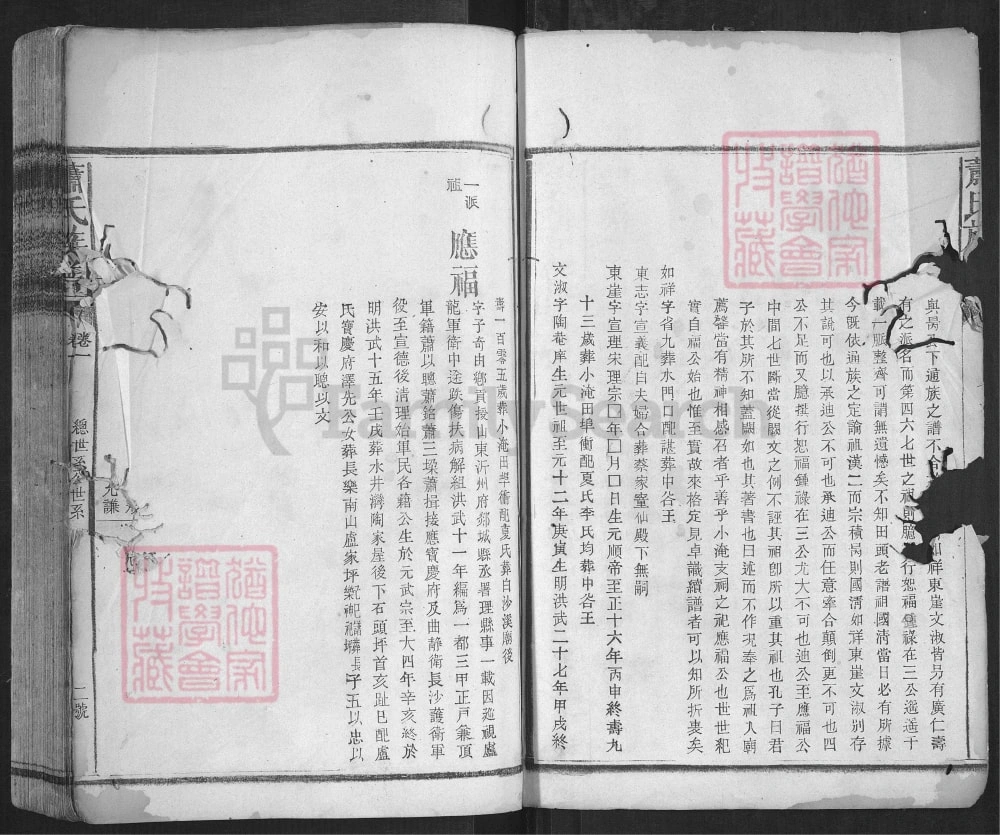 蕭氏
與昺公下通族之譜不
如祥東崖文淑皆另有廣仁壽
有之派名而第四六七世之祖
行恕福鍾祿在三公遙遙千
載一脈整齊可謂無遺憾矣不知田頭老譜祖國清當日必有所據
今旣依通族之定論祖漢二而宗積昺則國清如祥東崖文淑別存
其說可也以承迪公不可也承迪公而任意牽合顛倒更不可也四
公不足而又臆撰行恕福鍾祿在三公尤大不可也迪公至應福公
中間七世斷當從闕文之例不誣其祖卽所以重其祖也孔子曰君
子於其所不知蓋闕如也其著書也曰述而不作現奉之爲祖入廟
薦馨當有精神相感召者乎善乎小淹支祠之祀應福公也世世祀
實自福公始也惟至實故來格定見卓識續譜者可以知所折衷矣
如祥字省九葬水門口配諶葬中谷王
東志字宣義配白夫婦合葬蔡家窰仙殿下無嗣
東崖字宣理宋理宗囗年囗月囗日生元順帝至正十六年丙申終壽九
十三歲葬小淹田埠衝配夏氏李氏均葬中谷王
文淑字陶菴庠生元世祖至元十二年庚寅生明洪武二十七年甲戌終
壽一百零五歲葬小淹田學衝配夏氏葬白沙溪廟後
一派祖
應福
字子奇由鄉貢授山東沂州府郯城縣丞署理縣事一載因巡視盧
龍軍衛中途跌傷扶病解組洪武十一年編爲一都三甲正戸兼頂
軍籍蕭以聰蕭銘蕭三琛蕭揖接應寳慶府及曲靜衛長沙護衛軍
役至宣德後清理始軍民各籍公生於元武宗至大四年辛亥終於
明洪武十五年壬戌葬水井灣陶家屋後下石頭坪首亥趾巳配盧
氏寶慶府澤先公女葬長樂南山盧家坪
子五以忠以
安以和以聰以文
蕭氏族譜
卷一
總世系
世系
二號
譜學會
收藏
譜學會
收藏
FamilySearch